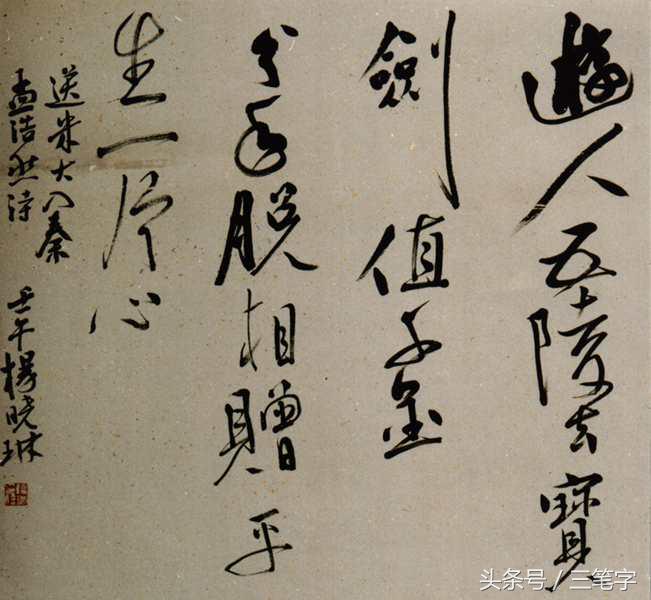 遊人五陵去寳
劍值千金
分手脱相贈平
生一片心
送米大入秦
孟浩然诗 壬午楊晓琳
头条号 / 三笔字